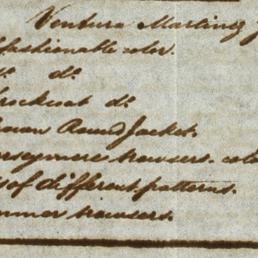 Ventura Martinez
fashionable color.
do.
rockcoat do.
Round Jacket.
trowsers. colo
of different patterns.
mmer trowsers.